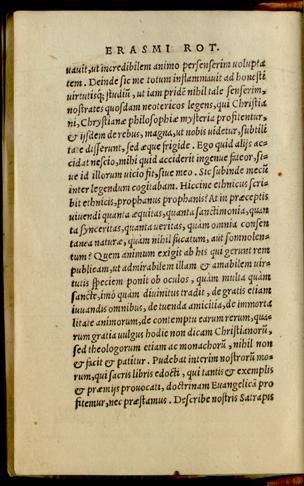 ERASMI ROT.
vauit, ut incredibilem animo persenserim volupta
tem. Deinde sic me totum inflammauit ad honesti
virtutisq; studiũ, ut iam pridẽ nihil tale senserim,
nostrates quosdam neotericos legens, qui Christia
ni, Chrystianæ philosophiæ mysteria profitentur,
& ijsdem de rebus, magna, ut nobis videtur, subtili
tate disserunt, sed æque frigide. Ego quid alijs ac
cidat nescio, mihi quid acciderit ingenue fateor, si-
ue id illorum vicio fit, siue meo. Sic subinde mecũ
inter legendum cogitabam. Hiccine ethnicus scri-
bit ethnicis, prophanus prophanis? At in præceptis
viuendi quanta æquitas, quanta sanctimonia, quan
ta synceritas, quanta veritas, quàm omnia consen
tanea naturæ, quàm nihil fucatum, aut somnolen-
tum? Quem animum exigit ab his qui gerunt rem
publicam, ut admirabilem illam & amabilem vir-
tutis speciem ponit ob oculos, quàm multa quàm
sancte, imò quàm diuinitus tradit, de gratis etiam
iuuandis omnibus, de tuenda amicitia, de immorta
litate animorum, de contemptu earum rerum, qua-
rum gratia uulgus hodie non dicam Christianorũ,
sed theologorum etiam ac monachorũ, nihil non
& facit & patitur. Pudebat interim nostrorũ mo-
rum, qui sacris libris edocti, qui tantis & exemplis
& præmijs prouocati, doctrinam Euangelicã pro
fitemur, nec præstamus. Describe nostris Satrapis